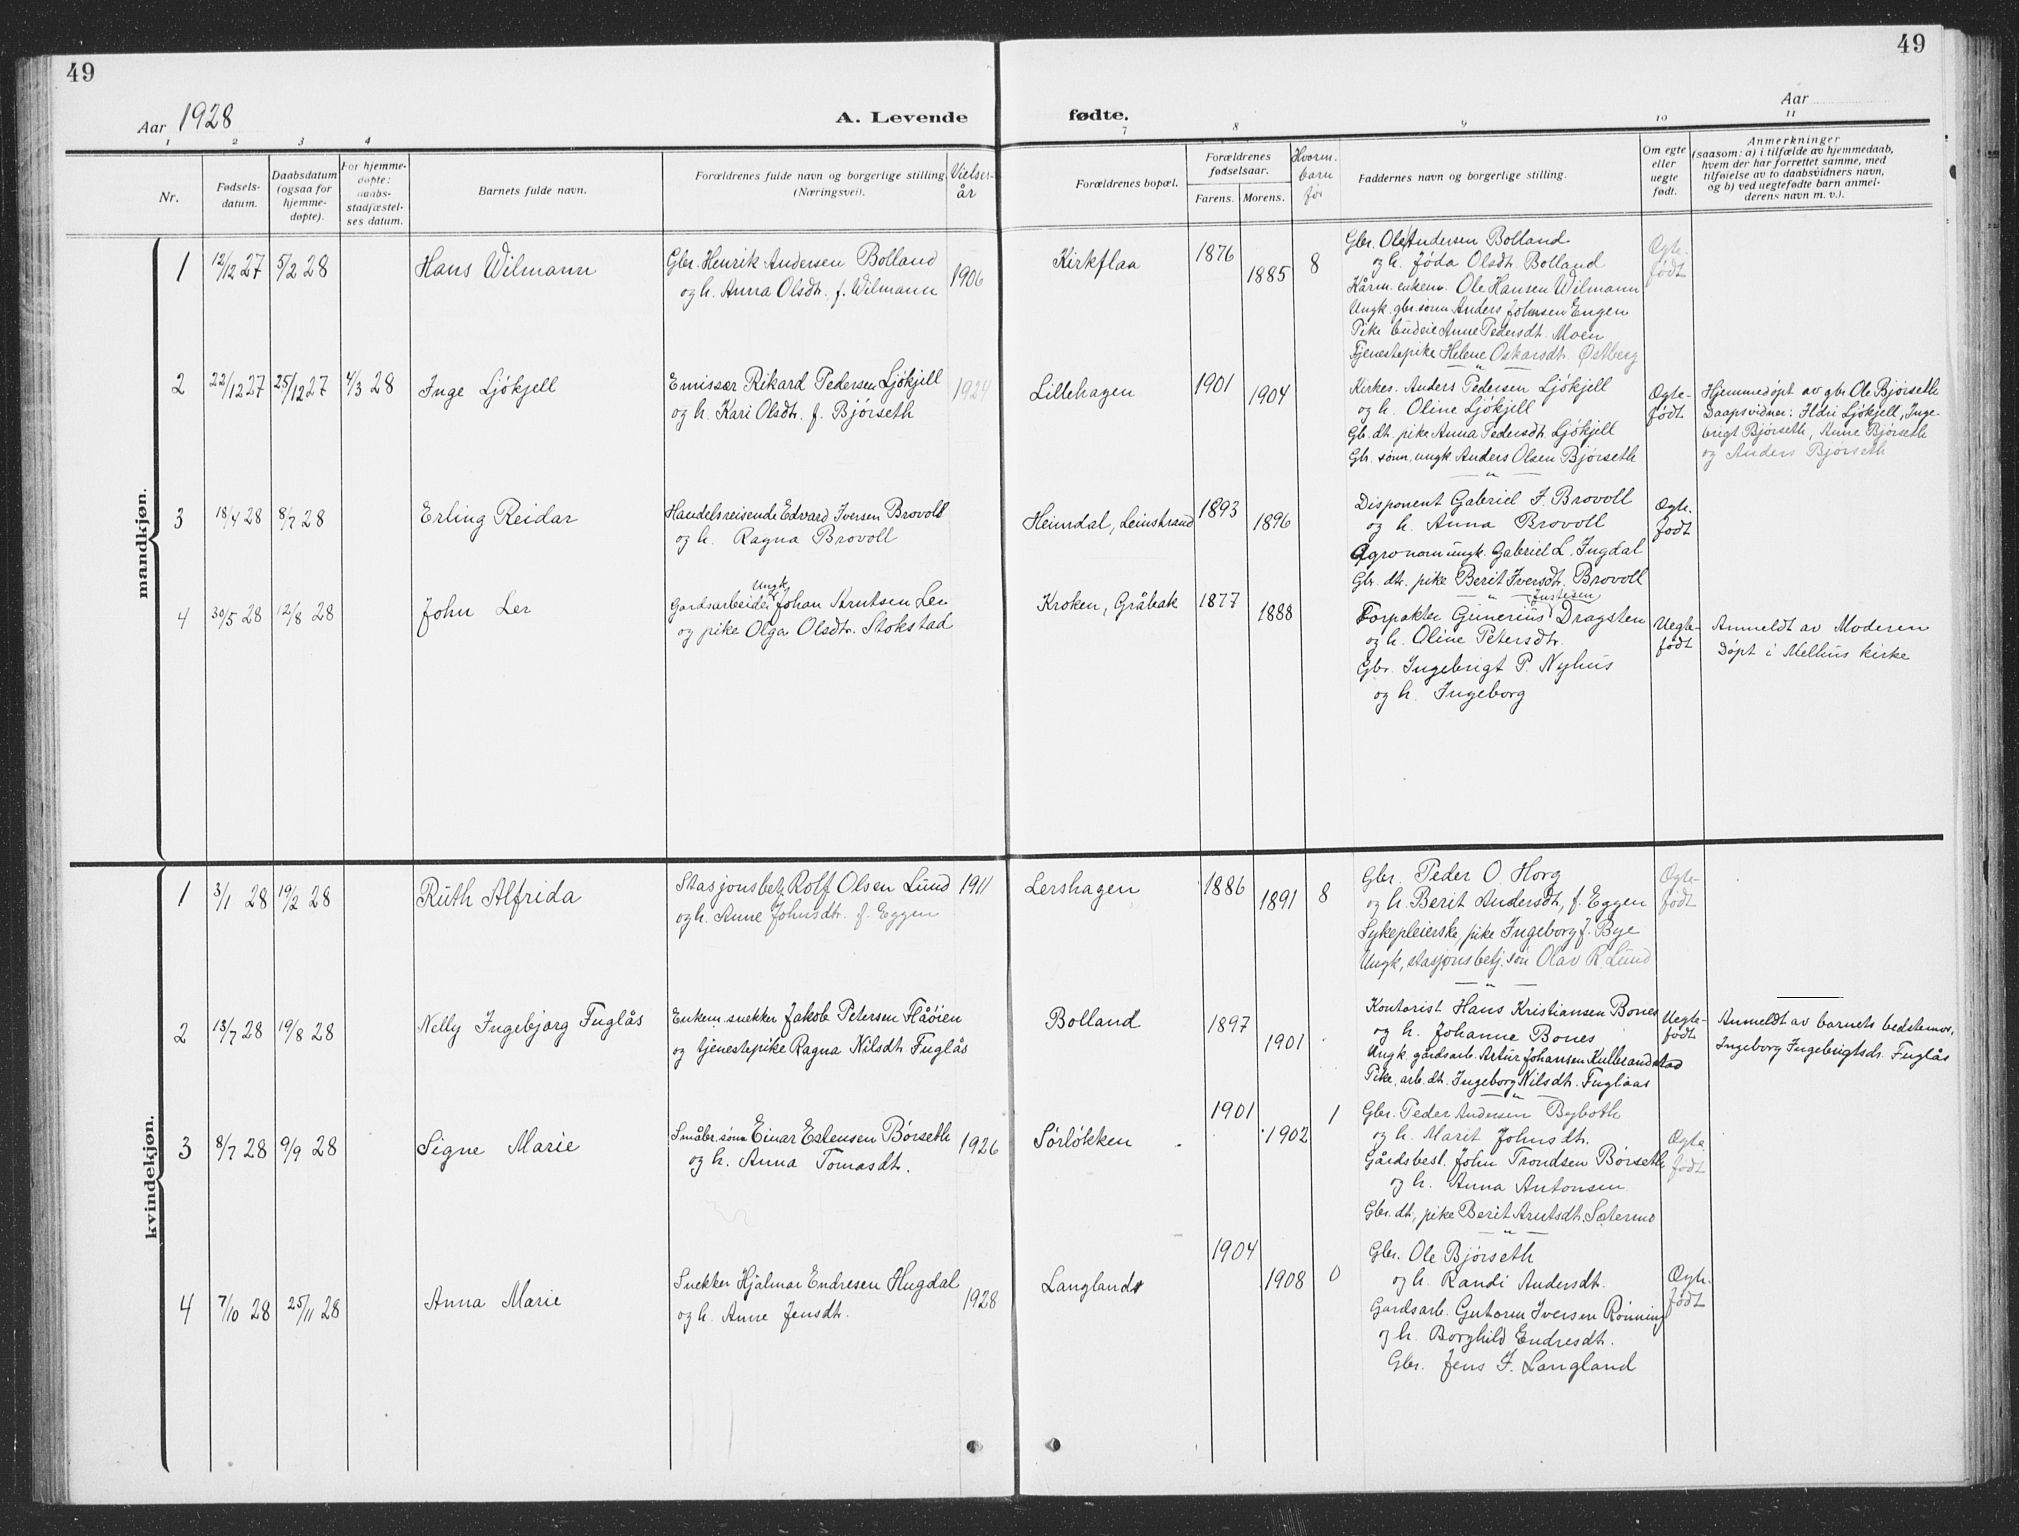 49
49
Aar 1928
A. Levende fødte.
Aar
1 2 3 4 7 8 9 10 11
Nr.
Fødsels-
datum.
Daabsdatum
(ogsaa for
hjemme-
døpte).
For hjemme-
døpte:
daabs-
stadfæstel-
ses datum.
Barnets fulde navn.
Forældrenes fulde navn og borgerlige stilling
(Næringsvei).
Vielses-
år
Forældrenes bopæl.
Forældrenes
fødselsaar.
Farens. Morens.
Hvorm.
barn
før
Faddernes navn og borgerlige stilling.
Om egte
eller
uegte
født.
Anmerkninger
(saasom: a) i tilfælde av hjemmedaab,
hvem der har forrettet samme, med
tilføielse av to daabsvidners navn,
og b) ved uegtefødte barn anmel-
derens navn m. v.).
mandkjøn.
1 12/12 27 5/2 28 Hans Wilmann
Gbr. Henrik Andersen Bolland
og h. Anna Olsdt. f. Wilmann
1906
Kirkflaa 1876 1885 8
Gbr. Ole Andersen Bolland
og h. Jøda Olsdt. Bolland
Kårm. enkem. Ole Hansen Wilmann
Ungk. gbr. sønn Anders Johnsen Engen
Pike budeie Anne Pedersdt. Moen
Tjenestepike Helene Oskarsdt. Østberg
Ægte-
født
2 22/12 27 25/12 27 4/3 28 Inge Ljökjell
Emissær Rikard Pedersen Ljökjell
og h. Kari Olsdt. f. Björseth
1924
Lillehagen 1901 1904
Kirkes. Anders Pedersen Ljökjell
og h. Oline Ljökjell
Gb. dt. pike Anna Pedersdt. Ljökjell
Gb. sønn, ungk. Anders Olsen Björseth
Ægte-
født
Hjemmedöpt av gbr Ole Björseth
Daapsvidner: Ildri Ljökjell, Inge-
brigt Björseth, Anne Björseth
og Anders Björseth
3 18/4 28 8/7 28 Erling Reidar
Handelsreisende Edvard Iversen Brovold
og h. Ragna Brovoll
Heimdal, Leinstrand 1893 1896
Disponent Gabriel I. Brovoll
og h. Anna Brovoll
Agronom ungk. Gabriel L. Ingdal
Gb. dt. pike Berit Iversdt. Brovoll
Ægte.
født
4 30/5 28 12/8 28 John Ler
Ungk.
Gardsarbeider Johan Knutsen Ler
og pike Olga Olsdt. Stokstad
Kroken, Gråbak 1877 1888
Justesen
Forpakter Gunerius Dragsten
og h. Oline Petersdt.
Gbr. Ingebrigt P. Nyhus
og h. Ingeborg
Uegte-
født
Anmeldt av Moderen
Döpt i Melhus kirke
kvindekjøn.
1 3/1 28 19/2 28 Ruth Alfrida
Stasjonsbetj. Rolf Olsen Lund
og h. Anne Johnsdt. f. Eggen
1911
Lershagen 1886 1891 8
Gbr. Peder O. Horg
og h. Berit Andersdt, f. Eggen
Sykepleierske, pike Ingeborg J. Bye
Ungk, stasjonsbetj. sön Olav R Lund
Ægte-
født
2 13/7 28 19/8 28 Nelly Ingebjørg Fuglås
Enkem. snekker Jakob Petersen Flåöien
og tjenestepike Ragna Nilsdt. Fuglås
Bolland 1897 1901
Kontorist Hans Kristiansen Bones
og h. Johanne Bones
Ungk. gårdsarb. Artur Johansen Kulbrandstad
Pike, arb. dt. Ingeborg Nilsdt. Fuglaas
Uegte-
født
Anmeldt av barnets bedstemor,
Ingeborg Ingebrigtsdt. Fuglås
3 8/7 28 9/9 28 Signe Marie
Småbr. sönn Einar Estensen Börseth
og h. Anna Tomasdt.
1926
Sörlökken 1901 1902 1
Gbr. Peder Andersen Byboth
og h. Marit Johnsdt.
Gårdsbest. John Trondsen Börseth
og h. Anna Antonsen
Gbr. dt, pike Berit Arntsdt. Sætermo
Ægte
født
4 7/10 28 25/11 28 Anna Marie
Snekker Hjalmar Endresen Hugdal
og h. Anne Jensdt.
1928
Langlands 1904 1908 0
Gbr. Ole Björseth
og h. Randi Andersdt.
Gardsarb. Gutorm Iversen Rønning
og h. Borghild Endresdt.
Gbr. Jens J. Langland
Ægte.
født